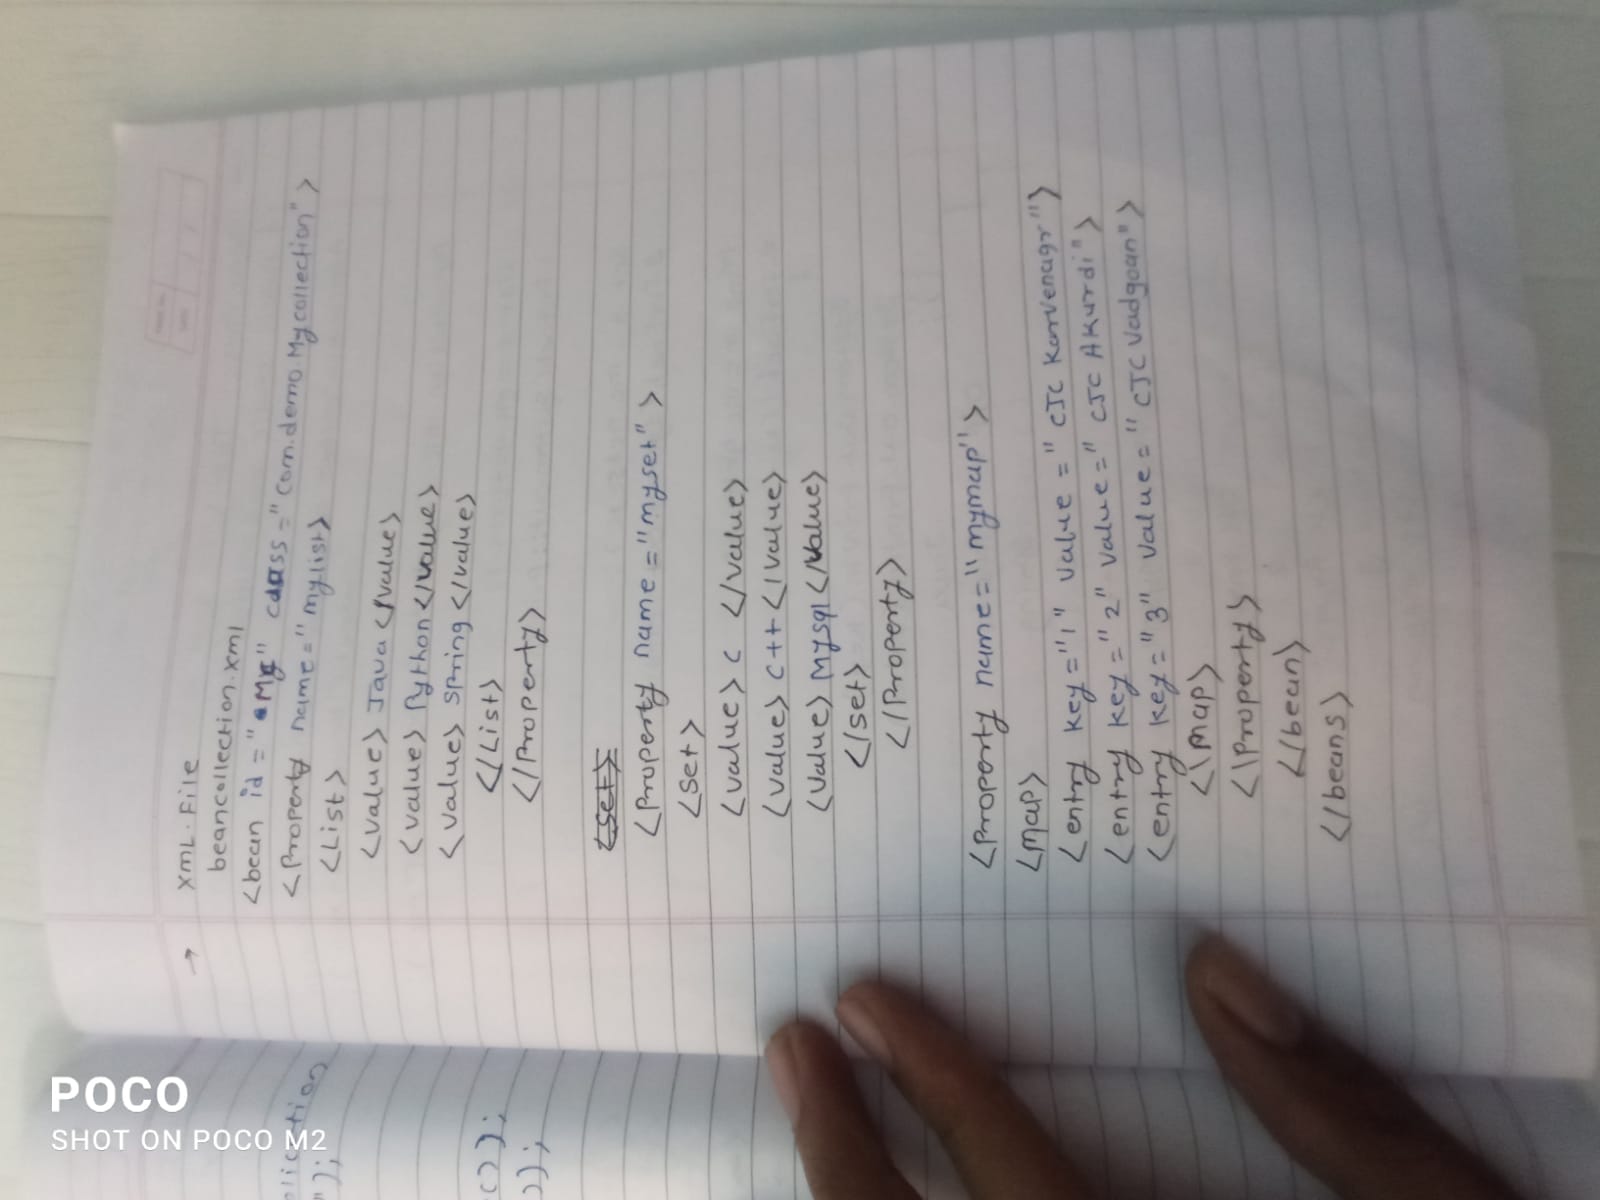 → XML.File
beancollection.xml
<bean id="My" class="com.demo.Mycollection">
<Property name="mylist">
<List>
<value> Java </value>
<value> Python </value>
<value> Spring </value>
</List>
</Property>
<set>
<Property name="myset">
<set>
<value> c </value>
<value> c++ </value>
<value> Mysql </value>
</set>
</Property>
<Property name="mymap">
<map>
<entry key="1" value="CJC Karvenagr">
<entry key="2" value="CJC Akurdi">
<entry key="3" value="CJC Vadgoan">
<\map>
<\Property>
</bean>
</beans>
plication
");
c());
));
POCO
SHOT ON POCO M2